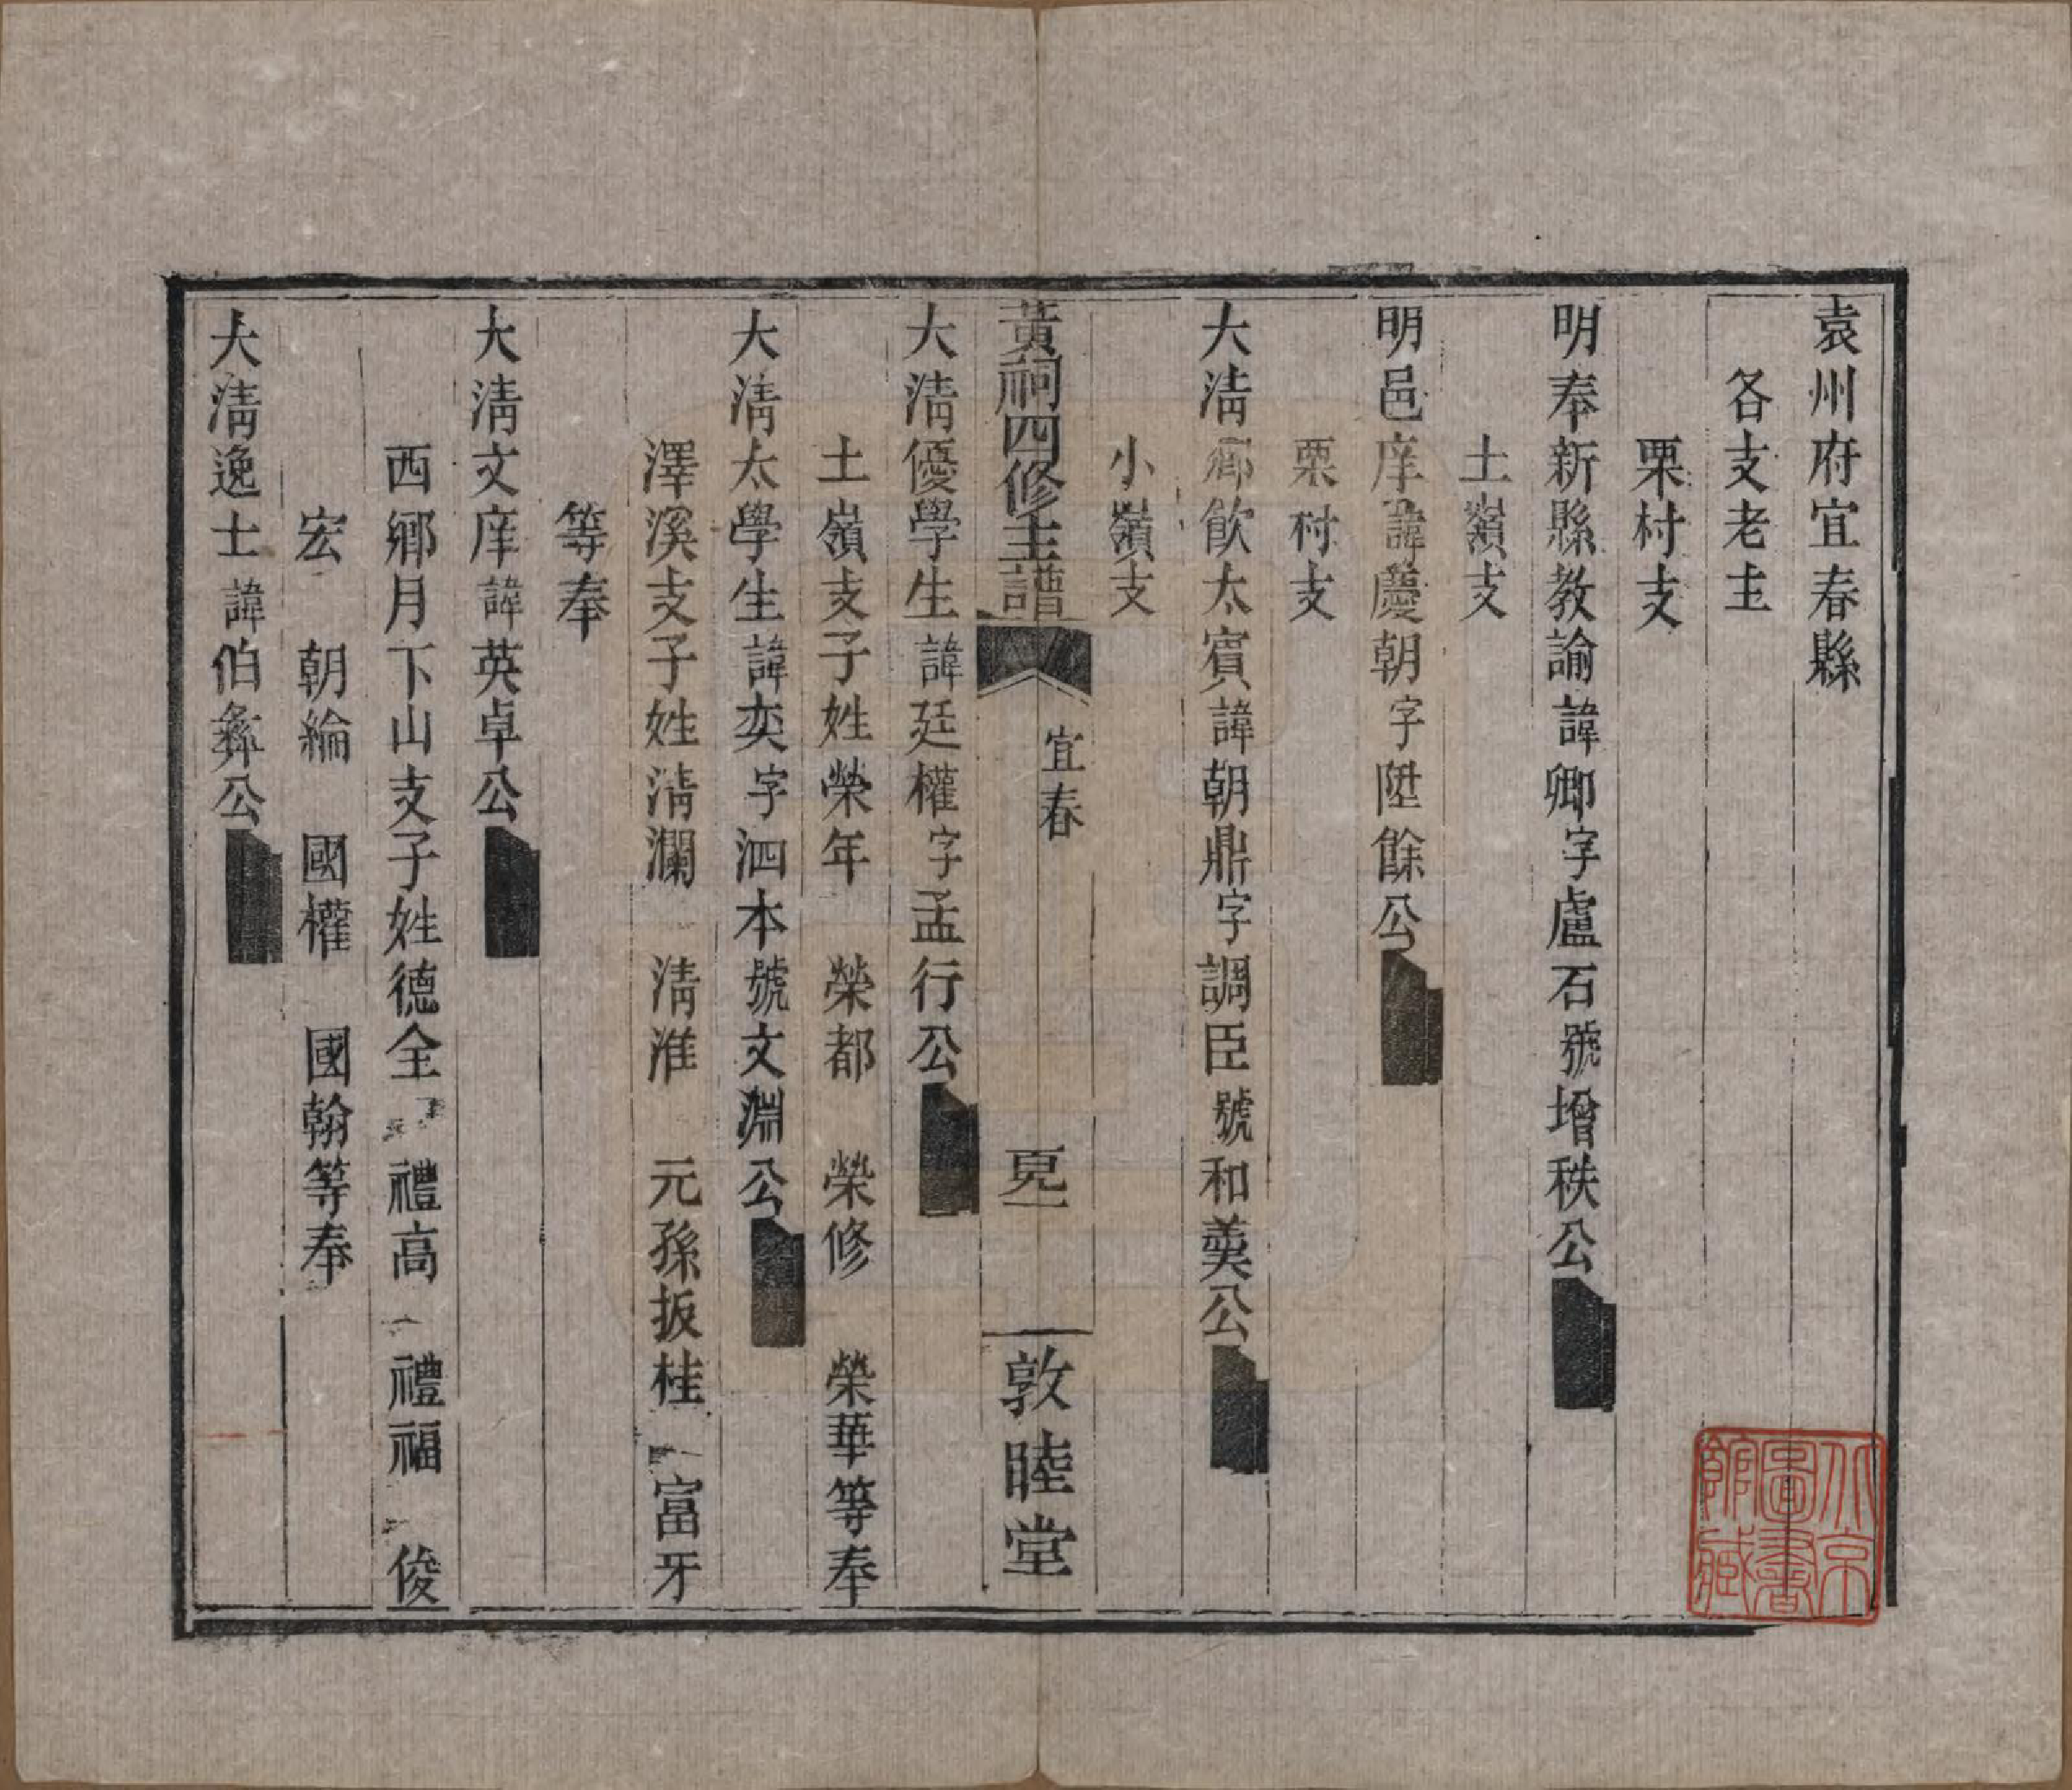 袁州府宜春縣
各支老主
栗村支
明奉新縣教諭諱卿字盧石號增秩公
土嶺支
明邑庠諱慶朝字陞餘公
栗村支
大清鄉飲太賓諱朝鼎字調臣號和羹公
小嶺支
黃祠四修主譜
宜春
敦睦堂
大清優學生諱廷權字孟行公
土嶺支子姓榮年 榮都 榮修 榮華等奉
大清太學生諱奕字泗本號文淵公
澤溪支子姓清瀾 清淮 元孫扳桂 富牙
等奉
大清文庠諱英卓公
西鄉月下山支子姓德全 禮高 禮福 俊
宏 朝綸 國權 國翰等奉
大清逸士諱伯彝公
北京圖書館藏